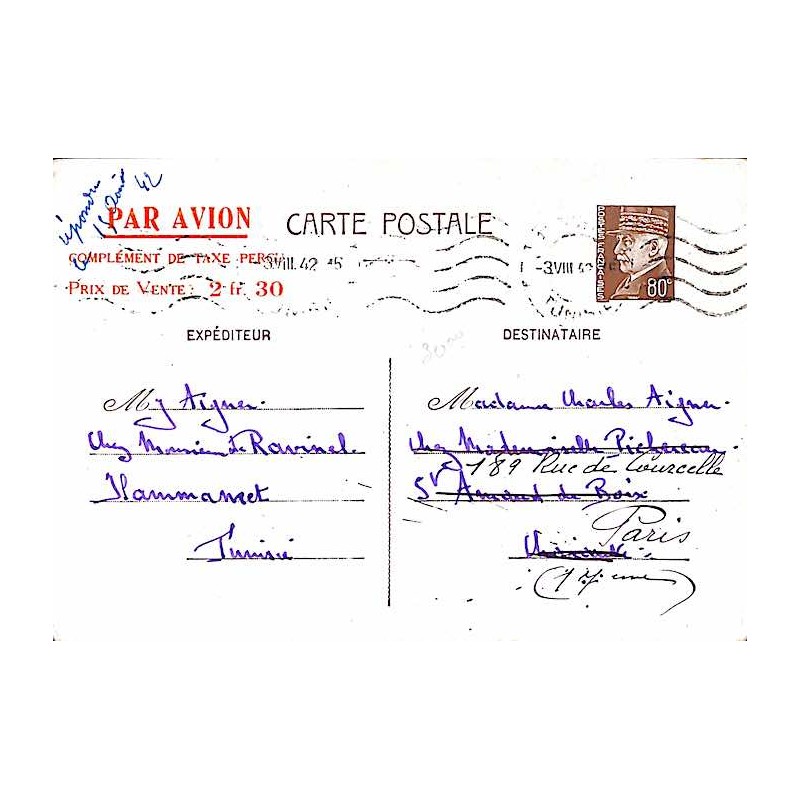 répondu
le 15 Août 42
PAR AVION
COMPLÉMENT DE TAXE PERÇU
PRIX DE VENTE : 2 fr. 30
CARTE POSTALE
-3 VIII. 42
-3 VIII 42
POSTES FRANÇAISES
80c
EXPÉDITEUR
My Aigner.
Chez Monsieur de Ravinel.
Hammamet
Tunisie
DESTINATAIRE
Madame Charles Aigner.
Chez Mademoiselle
189 Rue de Courcelle
St Amand de Boix
Paris
(17ème)